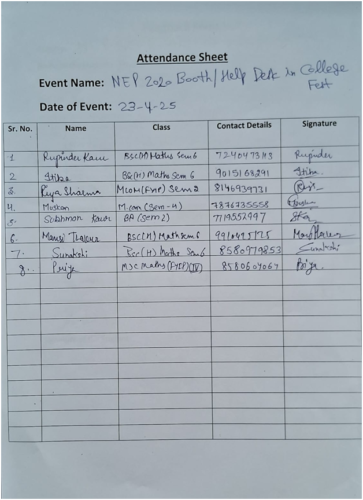 Attendance Sheet
Event Name: NEP 2020 Booth/Help Desk in College
Fest
Date of Event: 23-4-25
Sr. No. Name Class Contact Details Signature
1 Rupinder Kaur BSC(H) Maths Sem 6 Rupinder
2 BSC(H) Maths Sem 6 9615168291
3 Priya Sharma MCOM(FYIP) Sem 2 8146939731
4. Muskan M.com (Sem-4) 7876235558
5. Kaur BA (Sem 2) 7719552997
6. Mansi BSC(H) Math Sem 6
7. Sunakshi Bsc(H) Maths Sem 6 8580979853 Sunakshi
8. Priya MSC Maths (FYIP) 8580604067 Priya